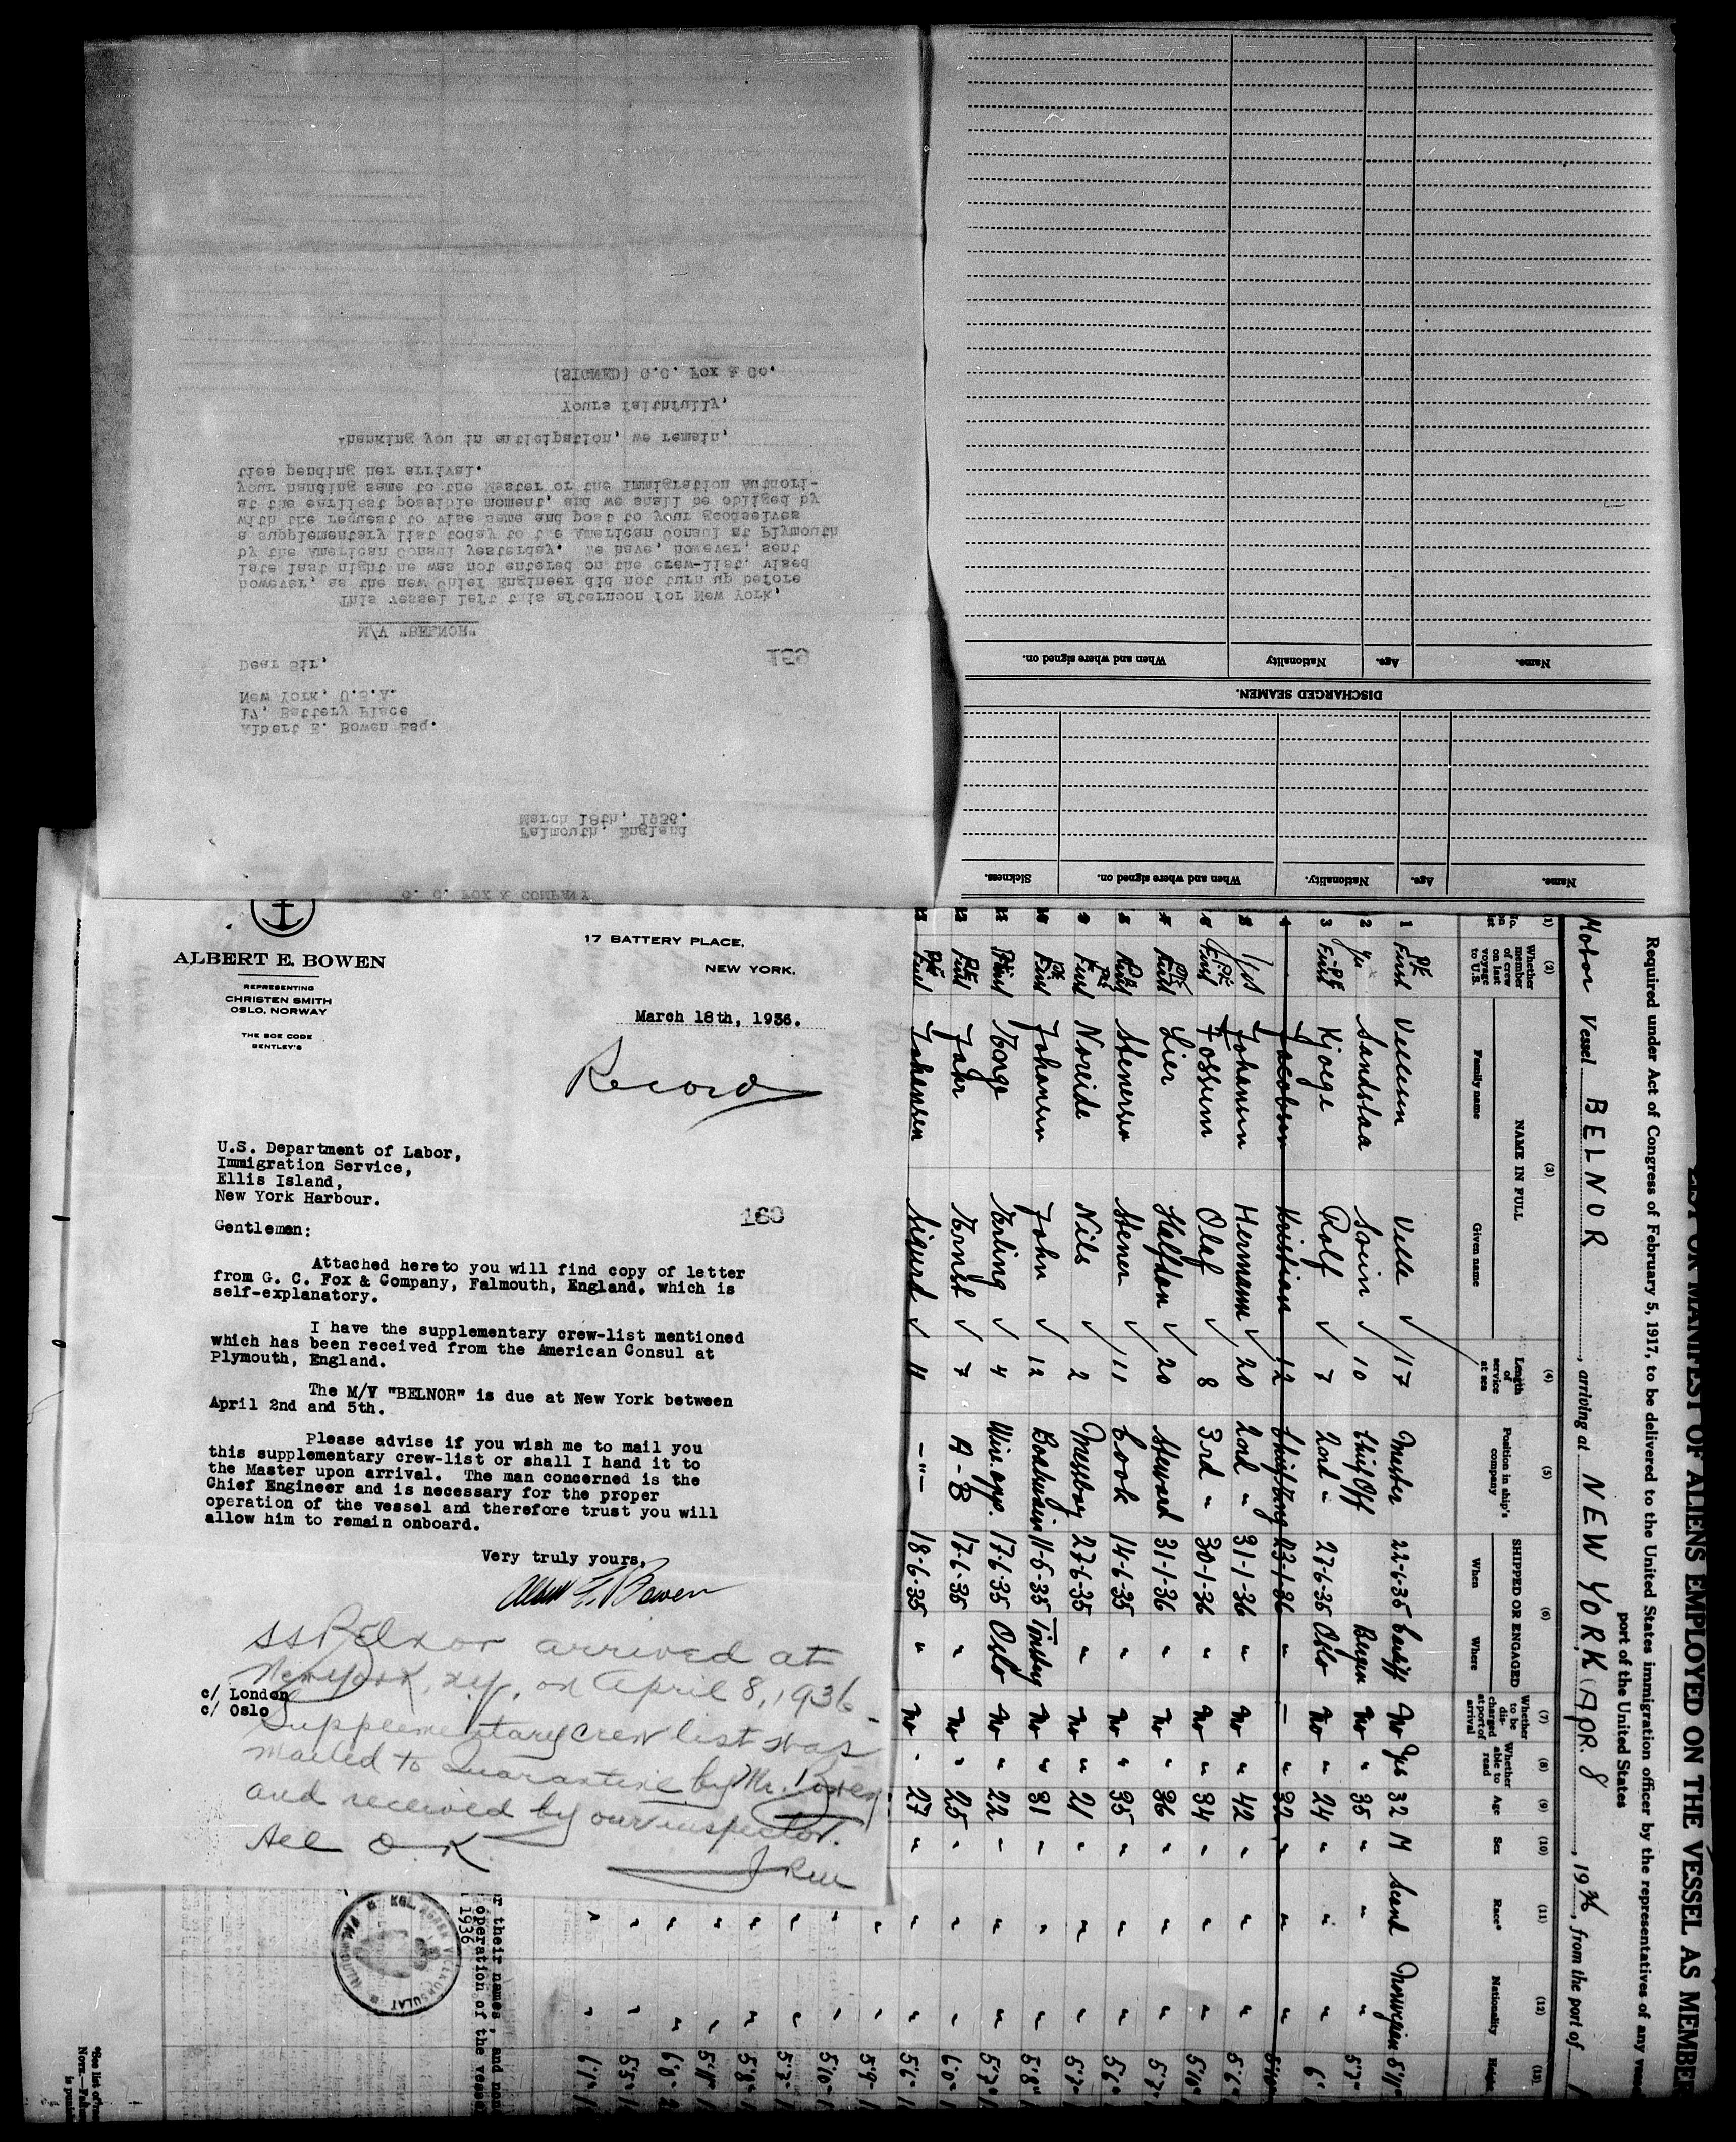 G. C. FOX & COMPANY
Falmouth, England
March 18th, 1936.
Albert E. Bowen Esq.
17, Battery Place
New York, U.S.A.
Dear Sir,
159
M/V "BELNOR"
This vessel left this afternoon for New York,
however, as the new Chief Engineer did not turn up before
late last night he was not entered on the crew-list, vised
by the American Consul yesterday. We have, however, sent
a supplementary list today to the American Consul at Plymouth
with the request to vise same and post to your goodselves
at the earliest possible moment, and we shall be obliged by
your handing same to the Master or the Immigration Authori-
ties pending her arrival.
Thanking you in anticipation, we remain,
Yours faithfully,
(SIGNED) G.C. Fox & Co.
Name. Age. Nationality. When and where signed on. Sickness.
DISCHARGED SEAMEN.
Name. Age. Nationality When and where signed on.
ALBERT E. BOWEN
REPRESENTING
CHRISTEN SMITH
OSLO, NORWAY
THE BOE CODE
BENTLEY'S
17 BATTERY PLACE,
NEW YORK.
March 18th, 1936.
Record
U.S. Department of Labor,
Immigration Service,
Ellis Island,
New York Harbour.
160
Gentlemen:
Attached hereto you will find copy of letter
from G. C. Fox & Company, Falmouth, England, which is
self-explanatory.
I have the supplementary crew-list mentioned
which has been received from the American Consul at
Plymouth, England.
The M/V "BELNOR" is due at New York between
April 2nd and 5th.
Please advise if you wish me to mail you
this supplementary crew-list or shall I hand it to
the Master upon arrival. The man concerned is the
Chief Engineer and is necessary for the proper
operation of the vessel and therefore trust you will
allow him to remain onboard.
Very truly yours,
Albert E. Bowen
c/ London
c/ Oslo
SS Belnor arrived at
New York, N.Y. on April 8, 1936.
Supplementary crew list was
mailed to Quarantine by Mr. Bowen
and received by our inspector.
All O.K.
MANIFEST OF ALIENS EMPLOYED ON THE VESSEL AS MEMBER
Required under Act of Congress of February 5, 1917, to be delivered to the United States immigration officer by the representatives of any
port of the United States
Motor Vessel BELNOR, arriving at NEW YORK Apr. 8, 1936, from the port of
(1) (2) (3) (4) (5) (6) (7) (8) (9) (10) (11) (12) (13)
Whether member of crew on last voyage to U.S.
NAME IN FULL
Family name Given name
Length of service at sea
Position in ship's company
SHIPPED OR ENGAGED
When Where
Whether to be discharged at port of arrival
Whether able to read
Age Sex Race* Nationality
1 First Velle 17 Master 22-6-35 Cardiff No Yes 32 M Scand Norwegian 5'11"
2 Yes Sandstaa 10 Chief Off Bergen No " 35 " " " 5'7"
3 First Kjoege Rolf 7 2nd " 27-6-35 Oslo No " 24 " " " 6'
4 Jacobsen Kristian 12 Chief Eng 23-1-36 " - " 32 " " "
Yes Johansen Hermann 20 2nd " 31-1-36 " No " 42 " " " 5'6"
First Fossum Olaf 8 3rd " 30-1-36 " No " 34 " " " 5'10"
First Lier Halfdan 20 Steward 31-1-36 " No " 36 " " " 5'7"
First Stenersen Stener 11 Cook 14-6-35 " No " 35 " " " 5'6"
First Noreide Nils 2 Messboy 27-6-35 " No " 21 " " " 5'7"
First Johansen John 12 Boatswain 11-6-35 Tönsberg No " 31 " " " 5'8"
First Erling 4 17-6-35 Oslo No " 22 " " " 5'7"
First Jahr Ernst 7 A-B 17-6-35 " No " 25 " " " 6'0"
First Johansen Sigurd 11 -"- 18-6-35 " No " 27 " " " 5'6"
" " 5'9"
" " 5'10"
" " 5'7"
" " 5'8"
" " 5'11"
" " 6'0"
" " 5'5"
" " 6'1"
r their names, and
operation of the vessel
1936